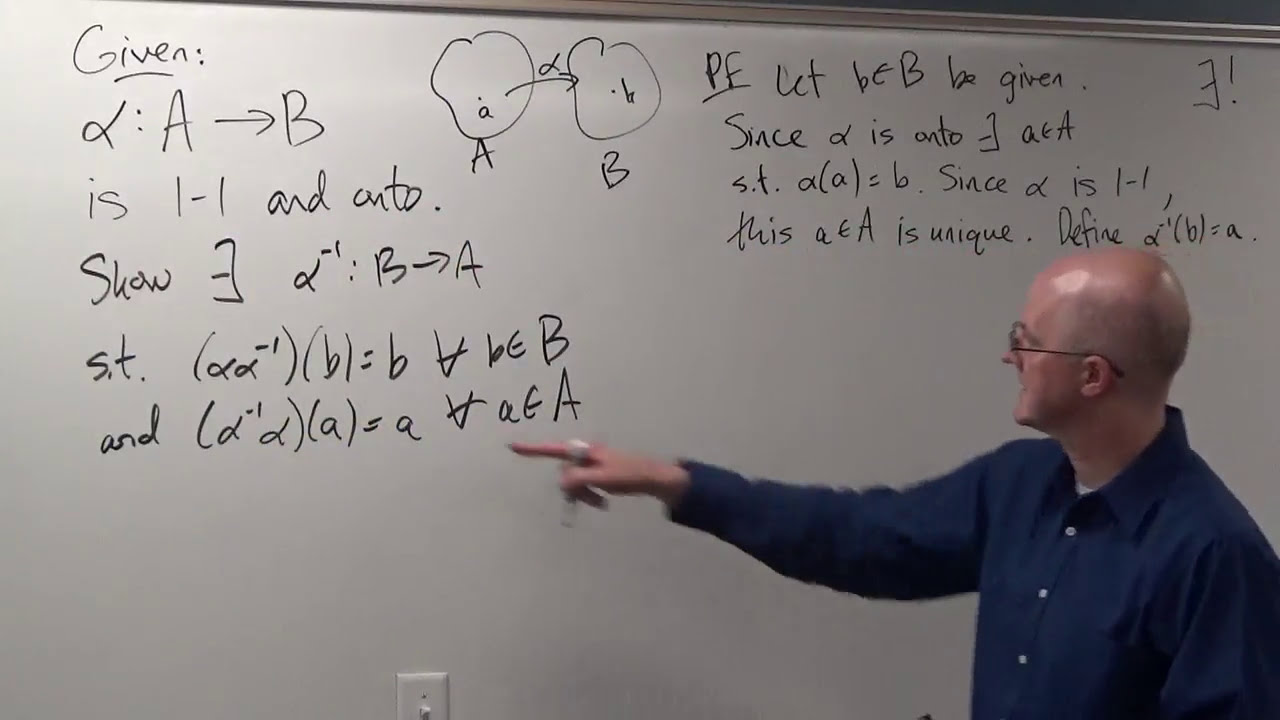 Given:
α : A → B
is 1-1 and onto.
Show ∃ α⁻¹ : B → A
s.t. (αα⁻¹)(b) = b ∀ b ∈ B
and (α⁻¹α)(a) = a ∀ a ∈ A
α
a
b
A
B
PF Let b ∈ B be given.
∃!
Since α is onto ∃ a ∈ A
s.t. α(a) = b. Since α is 1-1,
this a ∈ A is unique. Define α⁻¹(b) = a.